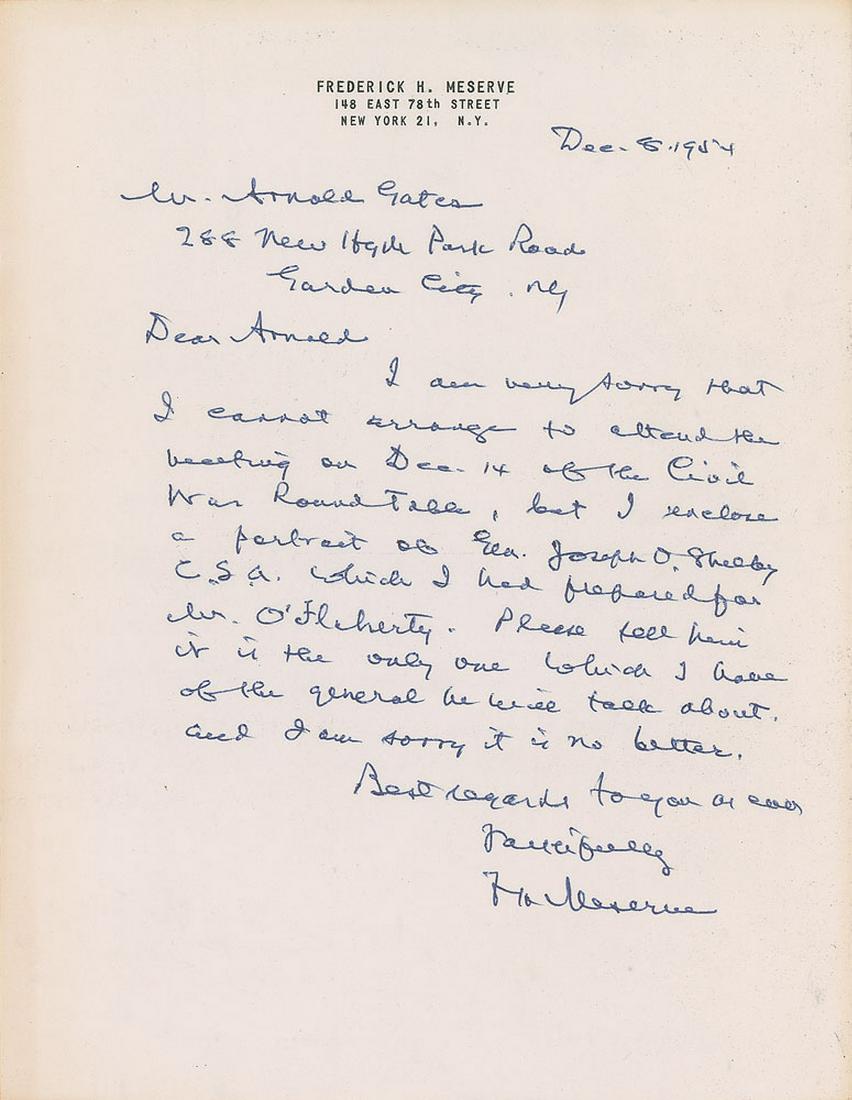 FREDERICK H. MESERVE
148 EAST 78th STREET
NEW YORK 21, N.Y.
Dec. 8. 1954
Mr. Arnold Gates
288 New Hyde Park Road
Garden City. NY
Dear Arnold
I am very sorry that
I cannot arrange to attend the
meeting on Dec. 14 of the Civil
War Round Table, but I enclose
a portrait of Gen. Joseph O. Shelby
C.S.A. which I had prepared for
Mr. O'Flaherty. Please tell him
it is the only one which I have
of the general he will talk about.
and I am sorry it is no better.
Best regards to you as ever
Faithfully
FH Meserve